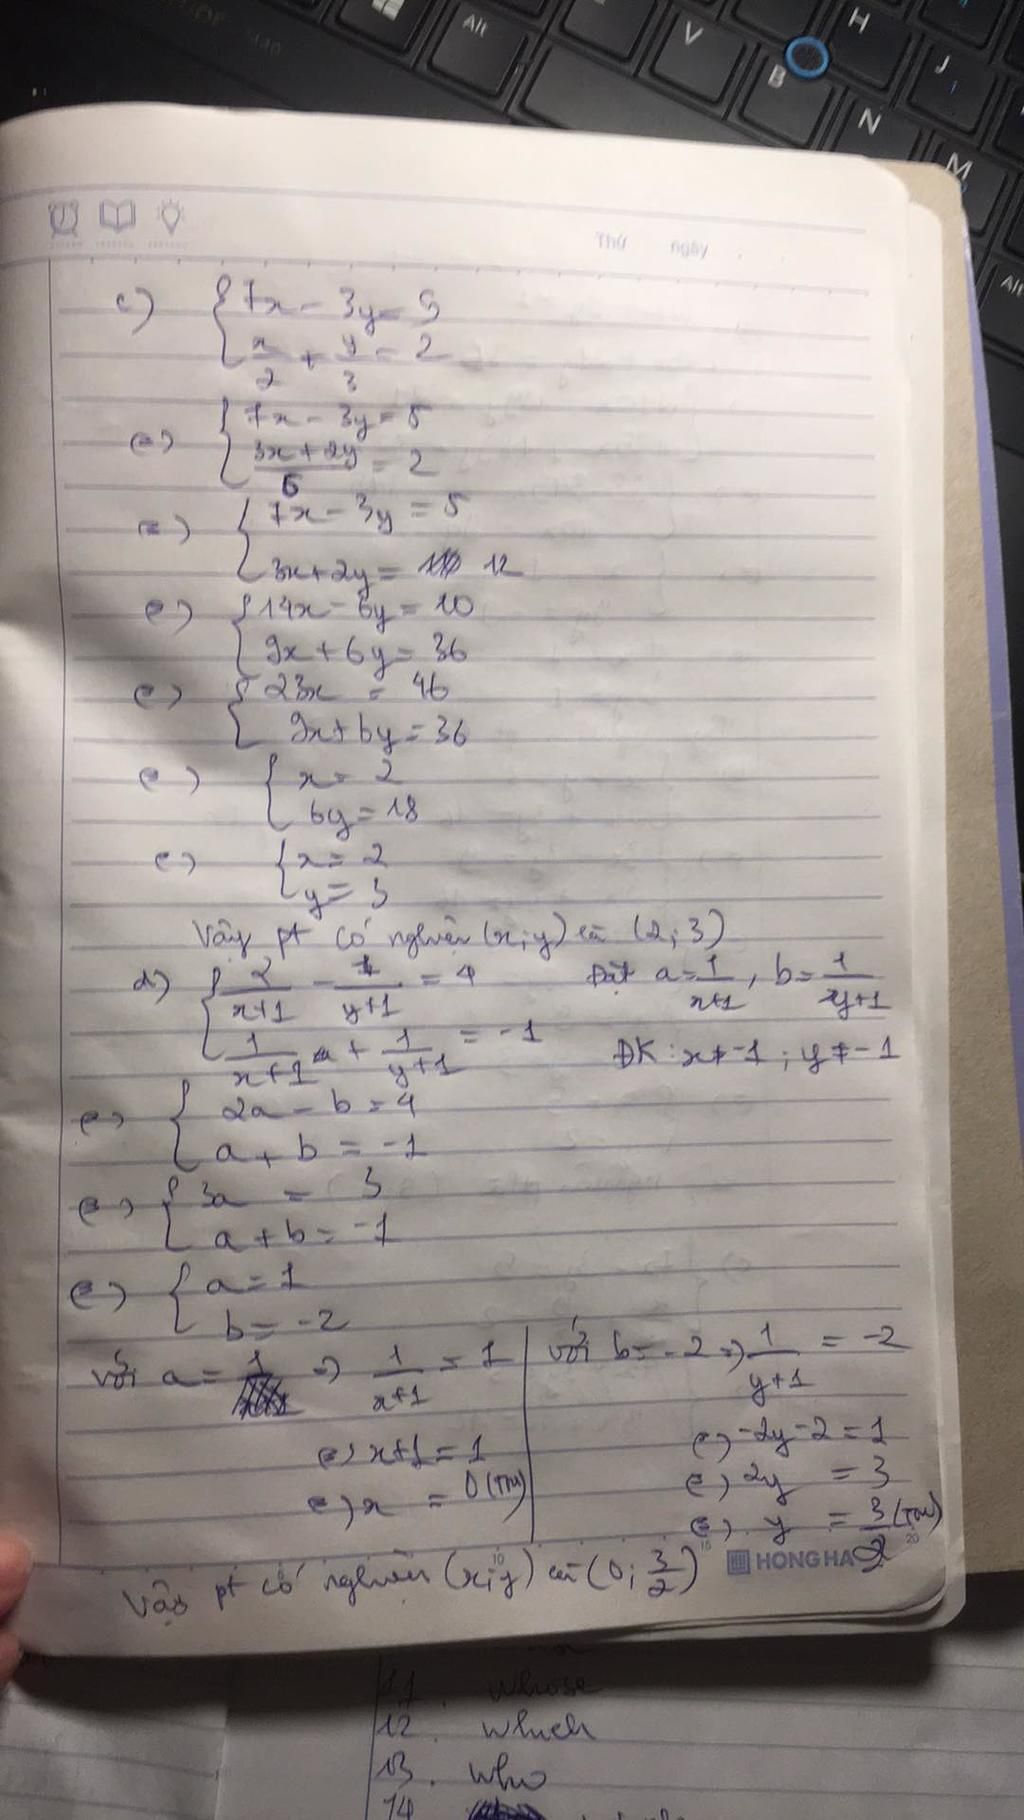 Alt
V
B
H
J
N
M
Alt
Thứ ngày
c) { 7x - 3y = 5
x/2 + y/3 = 2
<=> { 7x - 3y = 5
(3x + 2y)/6 = 2
<=> { 7x - 3y = 5
3x + 2y = 12
<=> { 14x - 6y = 10
9x + 6y = 36
<=> { 23x = 46
9x + 6y = 36
<=> { x = 2
6y = 18
<=> { x = 2
y = 3
Vậy pt có nghiệm (x; y) là (2; 3)
d) { 2/(x+1) - 1/(y+1) = 4 Đặt a = 1/(x+1), b = 1/(y+1)
1/(x+1) + 1/(y+1) = -1 ĐK: x ≠ -1 ; y ≠ -1
<=> { 2a - b = 4
a + b = -1
<=> { 3a = 3
a + b = -1
<=> { a = 1
b = -2
với a = 1 => 1/(x+1) = 1
<=> x + 1 = 1
<=> x = 0 (TM)
với b = -2 => 1/(y+1) = -2
<=> -2y - 2 = 1
<=> 2y = 3
<=> y = 3/2 (TM)
HONG HA
Vậy pt có nghiệm (x; y) là (0; 3/2)
11. whose
12. which
13. who
14